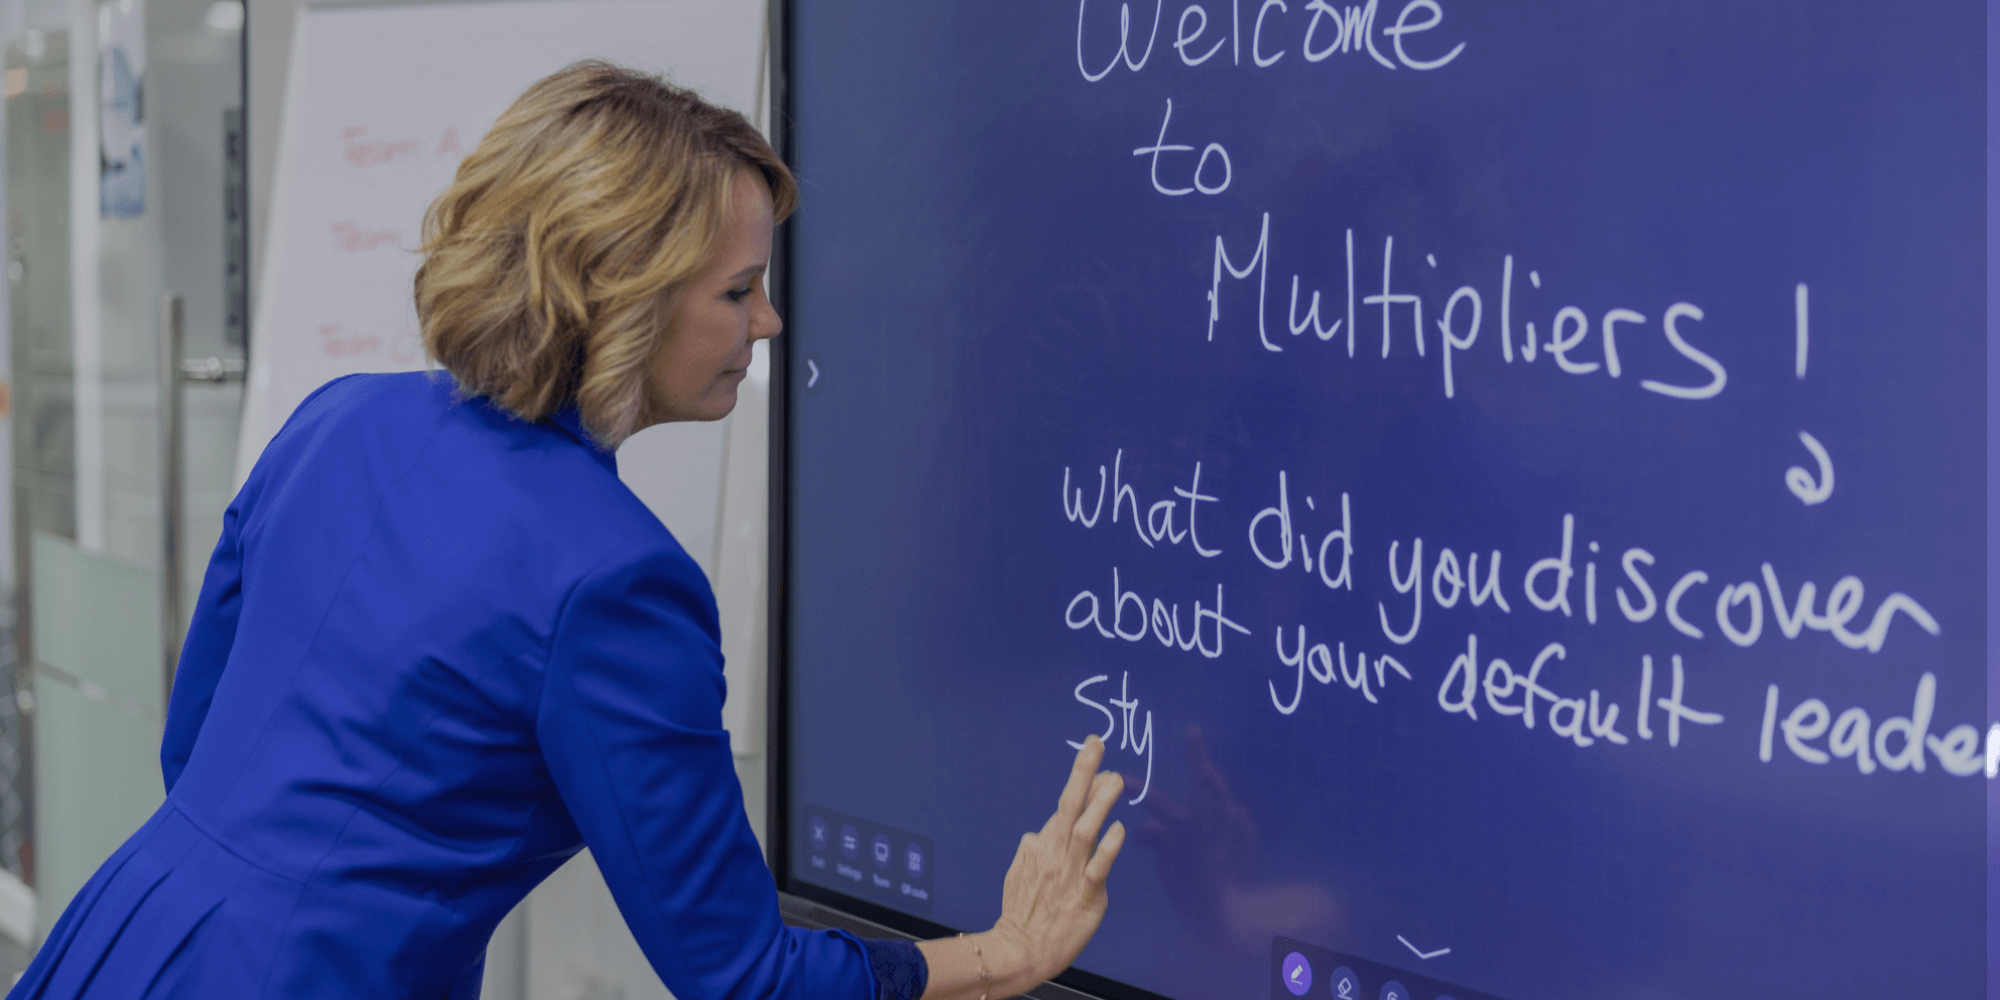 Welcome
to
Multipliers!
what did you discover
about your default leader
Sty
Team A
Team
Team
Exit
Settings
Team
QR code